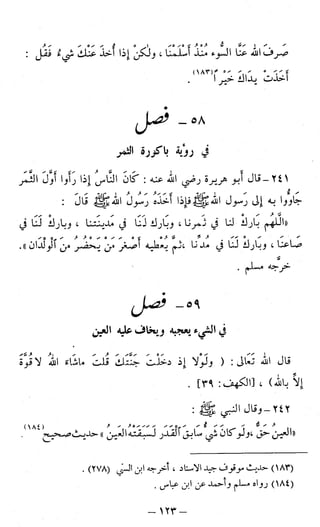 صرف الله عنا السوء منذ أسلمنا ، ولكن إذا أُخذ عنك شيءٌ فقل :
أخذت يداك خيراً (١٨٣) .
٥٨ - فصل
في رؤية باكورة الثمر
٢٤١ - قال أبو هريرة رضي الله عنه : كان الناسُ إذا رأوا أوَّل الثمر
جاؤوا به إلى رسول الله ﷺ فإذا أخذهُ رسولُ الله ﷺ قال :
«اللهُم بارك لنا في ثمرنا ، وبارك لنا في مدينتنا ، وبارك لنا في
صاعنا ، وبارك لنا في مدنا ، ثم يُعطيه أصغر من يحضر من الولدان» .
خرَّجه مسلم .
٥٩ - فصل
في الشيء يعجبه ويخاف عليه العين
قال الله تعالى : ( ولولا إذ دخلت جنتك قلت ماشاء الله لا قوة
إلا بالله ) ، [الكهف : ٣٩] .
٢٤٢ - وقال النبي ﷺ :
«العين حق ، ولو كان شيءٌ سابق القدر لسبقته العين» حديث صحيح (١٨٤) .
(١٨٣) حديث موقوف جيد الاسناد ، أخرجه ابن السني (٢٧٨) .
(١٨٤) رواه مسلم وأحمد عن ابن عباس .
- ١٢٣ -